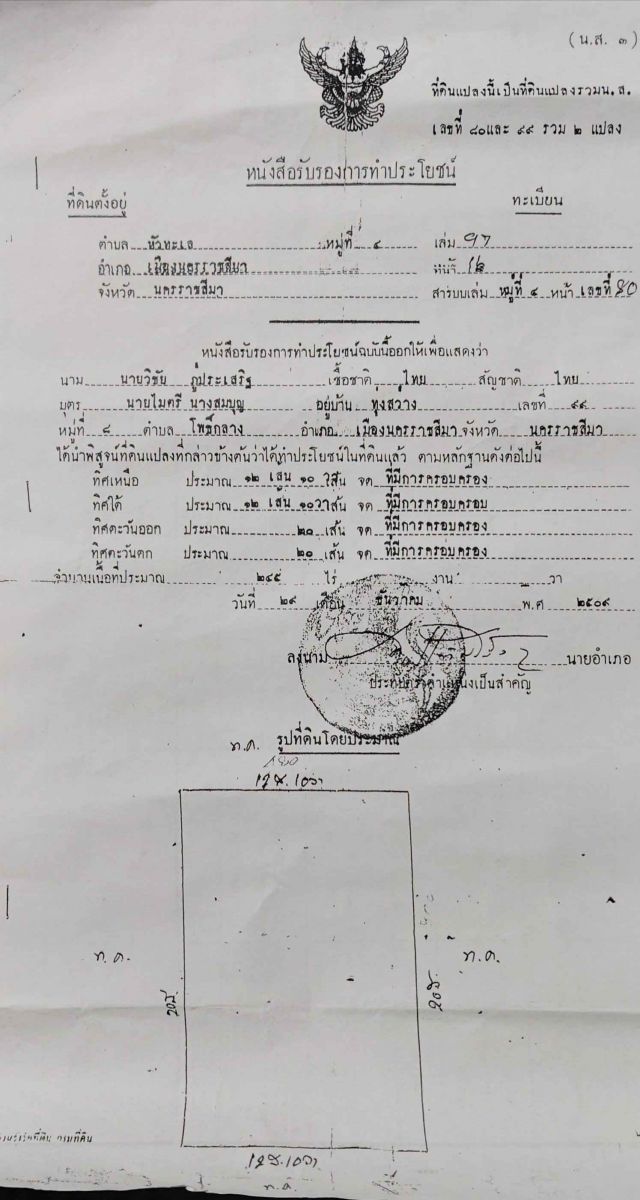 (น.ส. ๓)
ที่ดินแปลงนี้เป็นที่ดินแปลงรวมน.ส.
เลขที่ ๘๐และ ๙๙ รวม ๒ แปลง
หนังสือรับรองการทำประโยชน์
ที่ดินตั้งอยู่ ทะเบียน
ตำบล หัวทะเล หมู่ที่ ๔ เล่ม
อำเภอ เมืองนครราชสีมา หน้า
จังหวัด นครราชสีมา สารบบเล่ม หมู่ที่ ๔ หน้า เลขที่ 80
หนังสือรับรองการทำประโยชน์ฉบับนี้ออกให้เพื่อแสดงว่า
นาม นายวิชัย ภู่ประเสริฐ เชื้อชาติ ไทย สัญชาติ ไทย
บุตร นายไมตรี นางสมบุญ อยู่บ้าน ทุ่งสว่าง เลขที่ ๙๙
หมู่ที่ ๘ ตำบล โพธิ์กลาง อำเภอ เมืองนครราชสีมา จังหวัด นครราชสีมา
ได้นำพิสูจน์ที่ดินแปลงที่กล่าวข้างต้นว่าได้ทำประโยชน์ในที่ดินแล้ว ตามหลักฐานดังต่อไปนี้
ทิศเหนือ ประมาณ ๑๒ เส้น ๑๐ เส้น จด ที่มีการครอบครอง
ทิศใต้ ประมาณ ๑๒ เส้น ๑๐วาเส้น จด ที่มีการครอบครอบ
ทิศตะวันออก ประมาณ ๒๐ เส้น จด ที่มีการครอบครอง
ทิศตะวันตก ประมาณ ๒๐ เส้น จด ที่มีการครอบครอง
จำนวนเนื้อที่ประมาณ ๒๔๕ ไร่ งาน วา
วันที่ ๒๙ เดือน ธันวาคม พ.ศ ๒๕๐๙
ลงนาม นายอำเภอ
ประทับตราตำแหน่งเป็นสำคัญ
ท.ค. รูปที่ดินโดยประมาณ
12ส.10วา
ท.ค. ท.ค.
20ส. 20ส.
12ส.10วา
ท.ค.
กรมที่ดิน